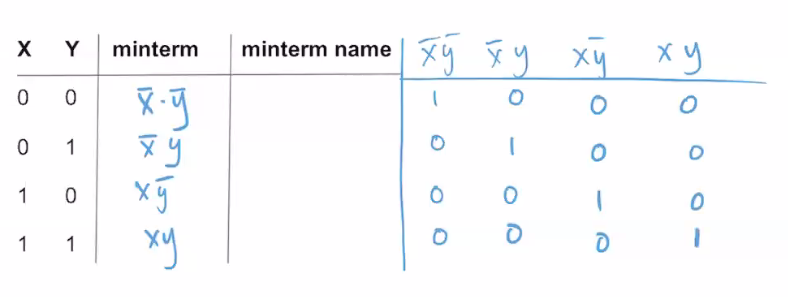 X Y minterm minterm name x̅y̅ x̅y xy̅ xy
0 0 x̅·y̅ 1 0 0 0
0 1 x̅y 0 1 0 0
1 0 xy̅ 0 0 1 0
1 1 xy 0 0 0 1